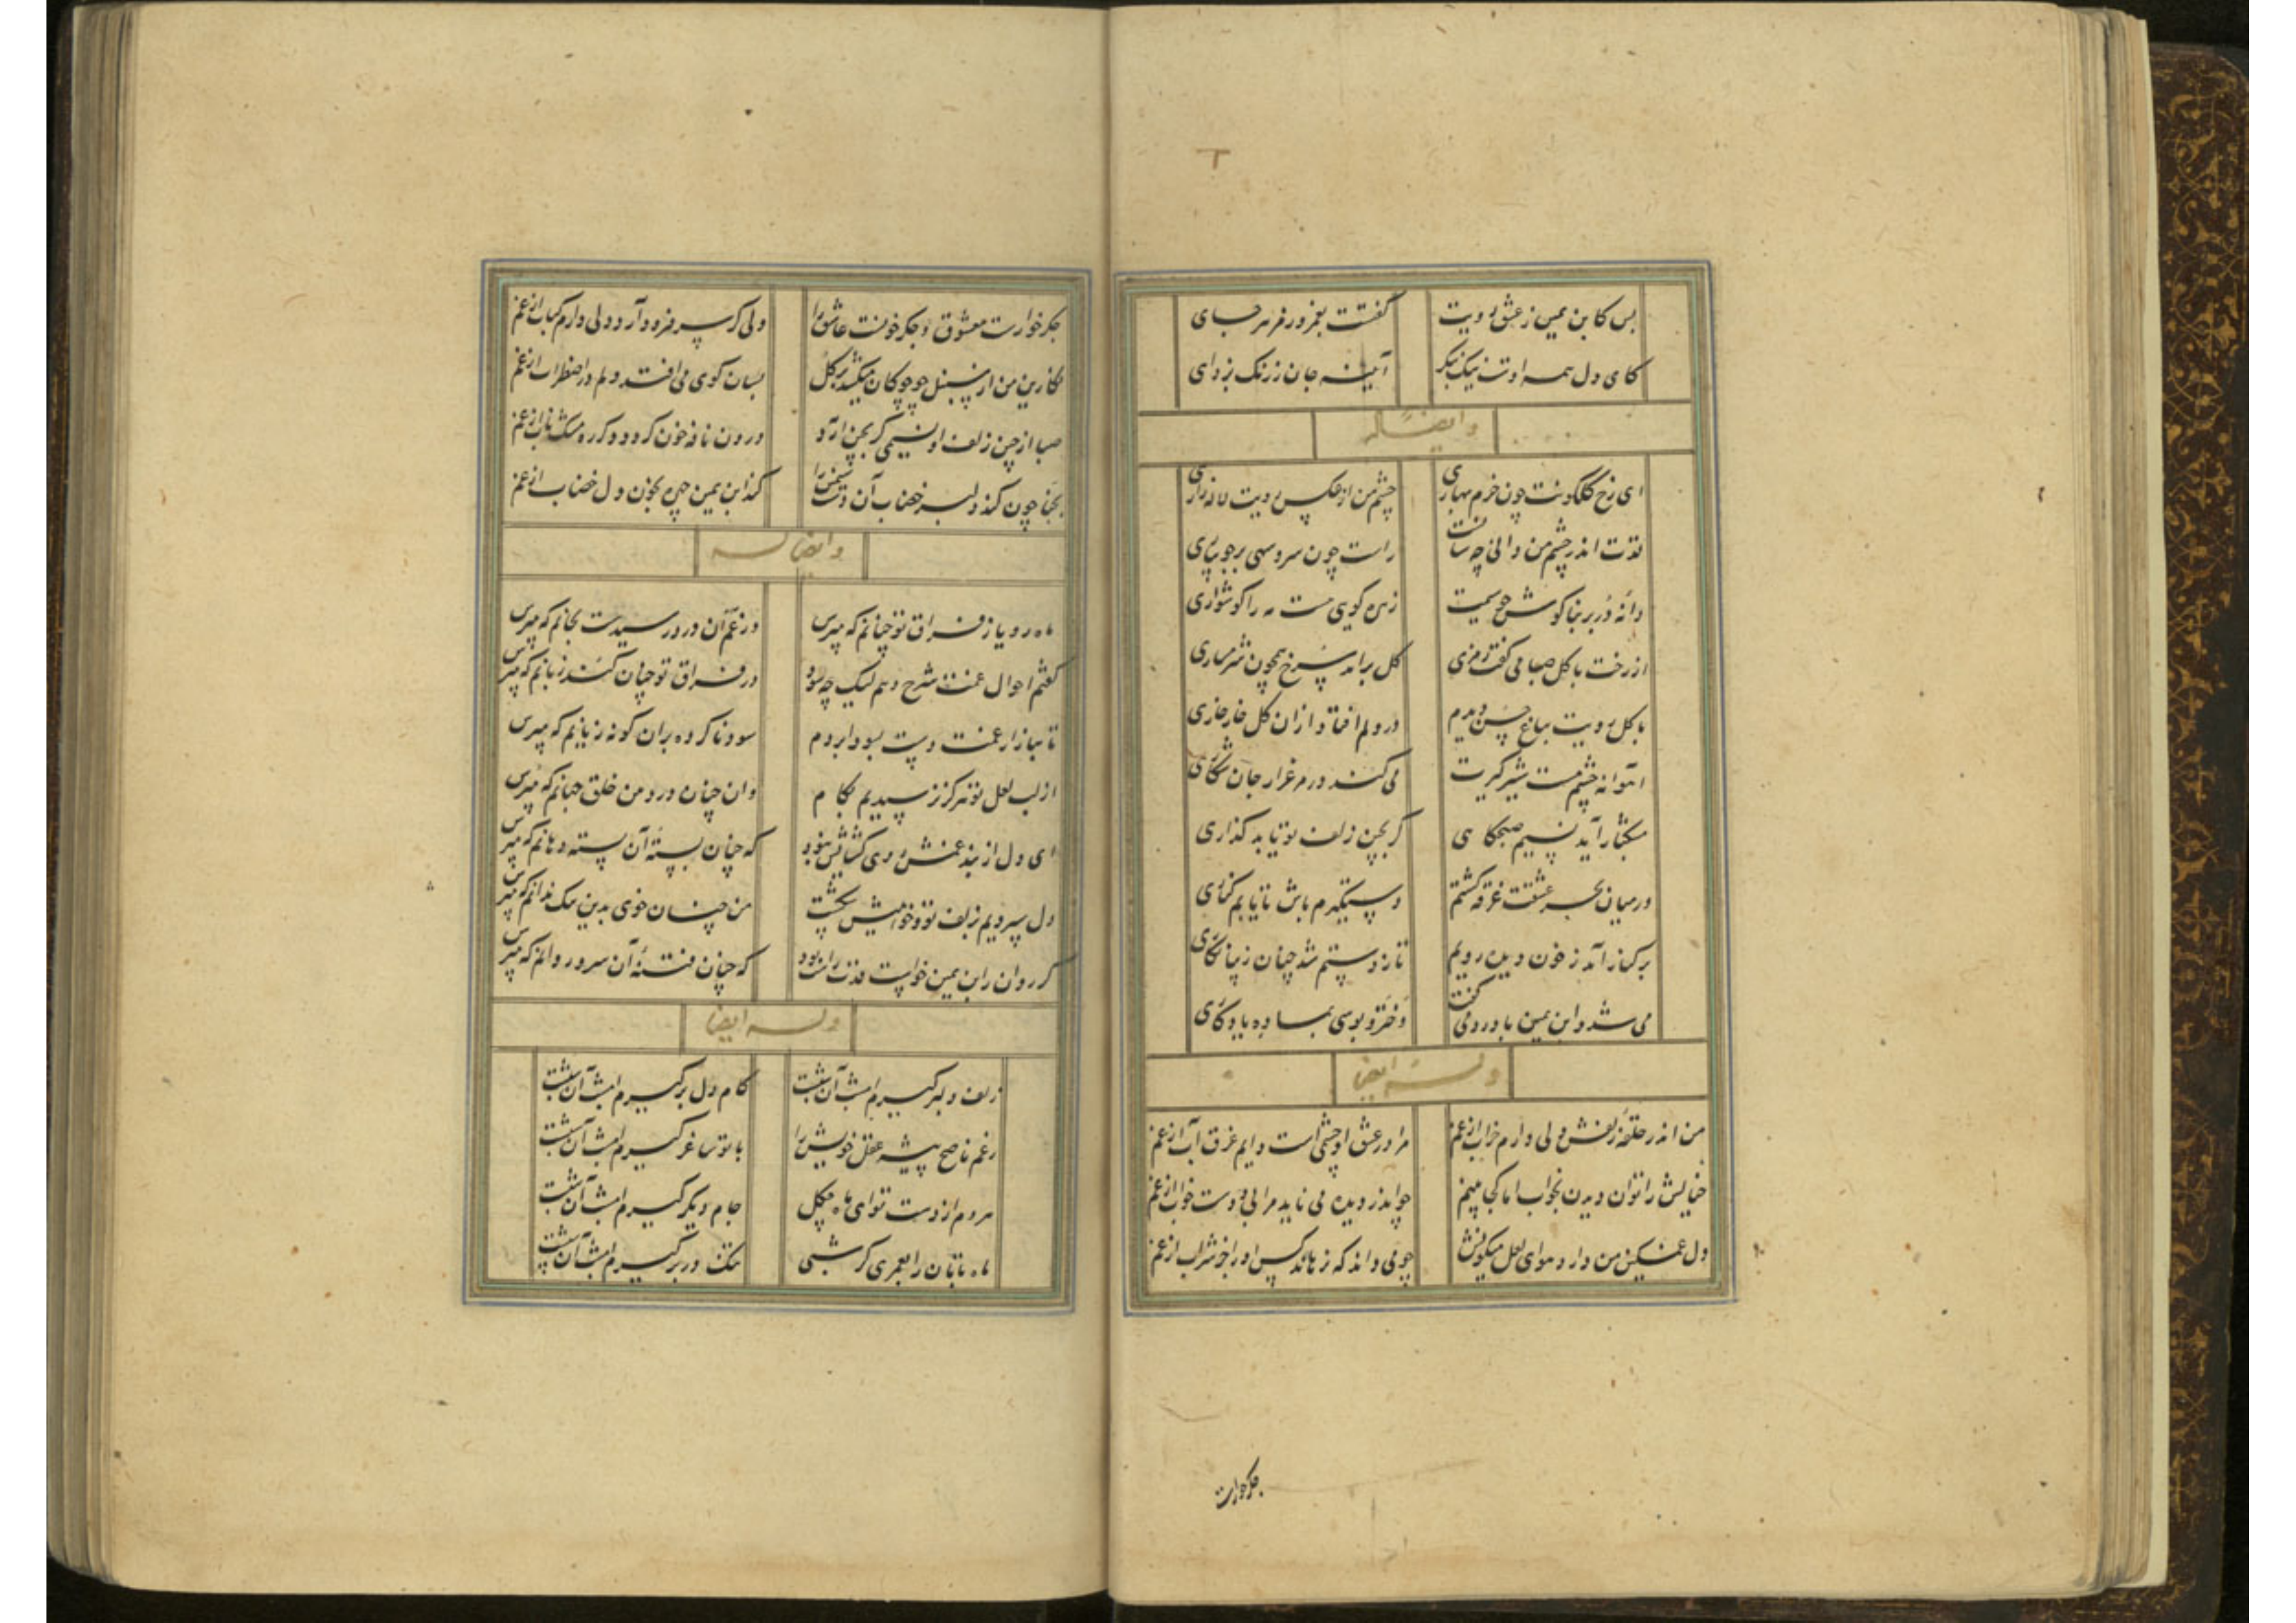 بس کابن یمین ز عشق رویت گفتست بغمز ورفر سرجای
کای دل همه اوست نیک بنکر آیینه جان ز زنک بزدای
وایضا له
ای رخ گلگونت چون خرم بهاری چشم من از عکس رویت لاله زاری
قدت اندر چشم من دانی چه سانست راست چون سرو سهی بر جویباری
دانهٔ در بر بناکوش چو سیمت زهره کویی هست مه را کوشواری
از رخت با کل صبا می کفت رمزی کل برآمد سرخ همچون شرمساری
با کل رویت بباغ حسن دیدم در دلم افتاد از ان کل خار خاری
آهوانه چشم مست شیرکیرت می کند در مرغزار جان شکاری
مشکبار آید نسیم صبحکاهی کر بچین زلف تو یابد کذاری
در میان بحر عشقت غرقه کشتم دستکیرم باش تا یابم کناری
بر کنار آمد ز خون دیده رویم تا ز دستم شد چنان زیبا نکاری
می شد و ابن یمین با درد می کفت آخر دو بوسی بما ده یادکاری
وله ایضا
من اندر حلقهٔ زلفش دلی دارم خراب از غم مرا در عشق او چشمی است دایم غرق آب از غم
خیالش را توان دیدن بخواب اما کجا بینم چو اندر دیده می ناید مرا بی دوست خواب از غم
دل غمکین من دارد هوای لعل میکونش چو می داند که نرهاند کس او را جز شراب از غم
جکرخوارست
جکرخوارست معشوق و جکر خونست عاشق را ولی کر سر فرود آرد دلی دارم کباب از غم
نکارین من از سنبل چو چوکان میکشد بر کل بسان کوی می افتد دلم در اضطراب از غم
صبا از چین زلف او نسیمی کر بچین آرد درون نافه خون کردد دکر ره مشک ناب از غم
بحنا چون کند دلبر خضاب آن دست سیمین را کند ابن یمین چهره بخون دل خضاب از غم
وایضا له
ماه رویا ز فراق تو چنانم که مپرس وز غم آن درد رسیدست بجانم که مپرس
کفتم احوال غمت شرح دهم لیک چه سود در فراق تو چنان کند زبانم که مپرس
تا ببازار غمت دست بسودا بردم سود ناکرده بران کونه زیانم که مپرس
از لب لعل تو هرکز نرسیدیم بکام وان چنان در دهن خلق جهانم که مپرس
ای دل از بند غمش روی کشایش نبود که چنان بستهٔ آن پسته دهانم که مپرس
دل سپردیم بزلف تو و خواهیش شکست من چنان خوی بدین سک ندانم که مپرس
کر روان ابن یمین خواست قدت را نبود که چنان فتنهٔ آن سرو روانم که مپرس
وله ایضا
زلف دلبر کیرم امشب آن شبست کام دل بر کیرم امشب آن شبست
رغم ناصح پیشه عقل خویش را با تو ساغر کیرم امشب آن شبست
هر دم از دست تو ای ماه چکل جام دیکر کیرم امشب آن شبست
ماه تابان را بعمری کر شبی تنک در بر کیرم امشب آن شبست